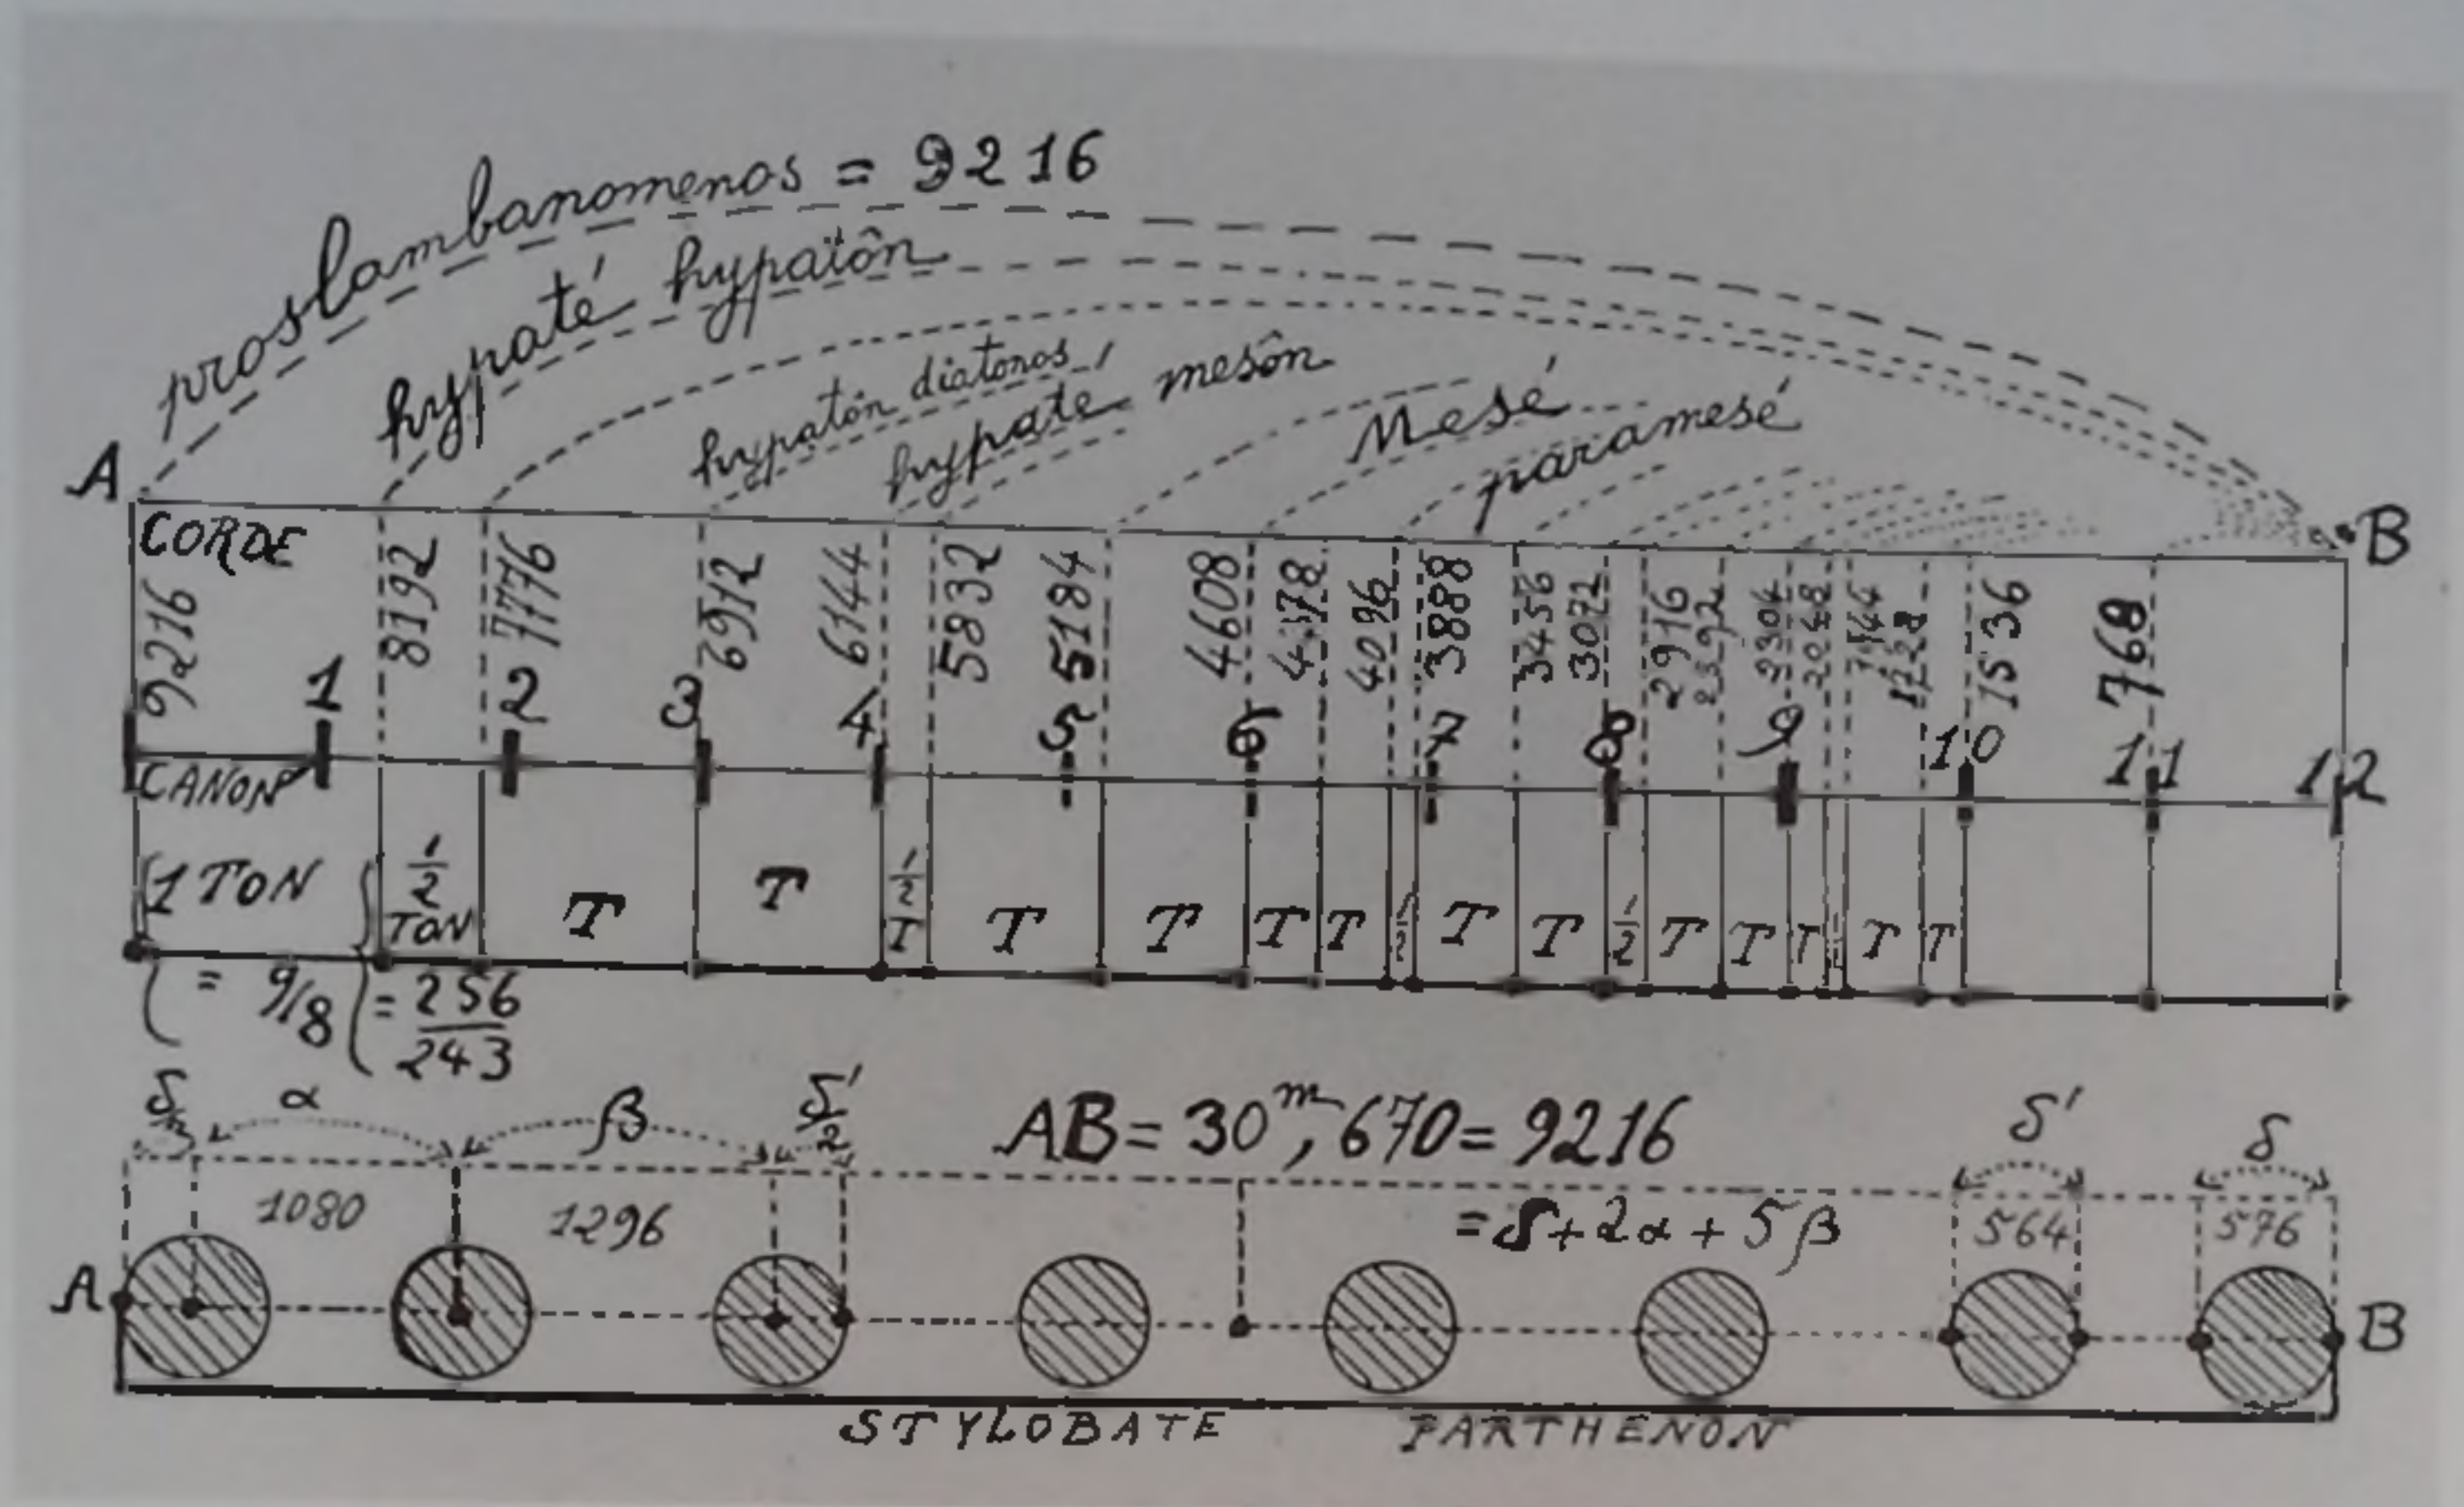 proslambanomenos = 9216
hypaté hypatôn
hypatôn diatonos
hypate mesôn
Mesé
paramesé
A
B
CORDE
9216
8192
7776
6912
6144
5832
5184
4608
4096
3888
3456
3072
2916
2592
2304
2048
1728
1536
768
1 2 3 4 5 6 7 8 9 10 11 12
CANON
1 TON
1/2 TON
T T 1/2 T T T T T 1/2 T T 1/2 T T T T T
= 9/8
= 256/243
δ/2 α β δ'/2
AB = 30m,670 = 9216
δ' δ
1080 1296
= δ + 2α + 5β
564 576
A B
STYLOBATE PARTHENON